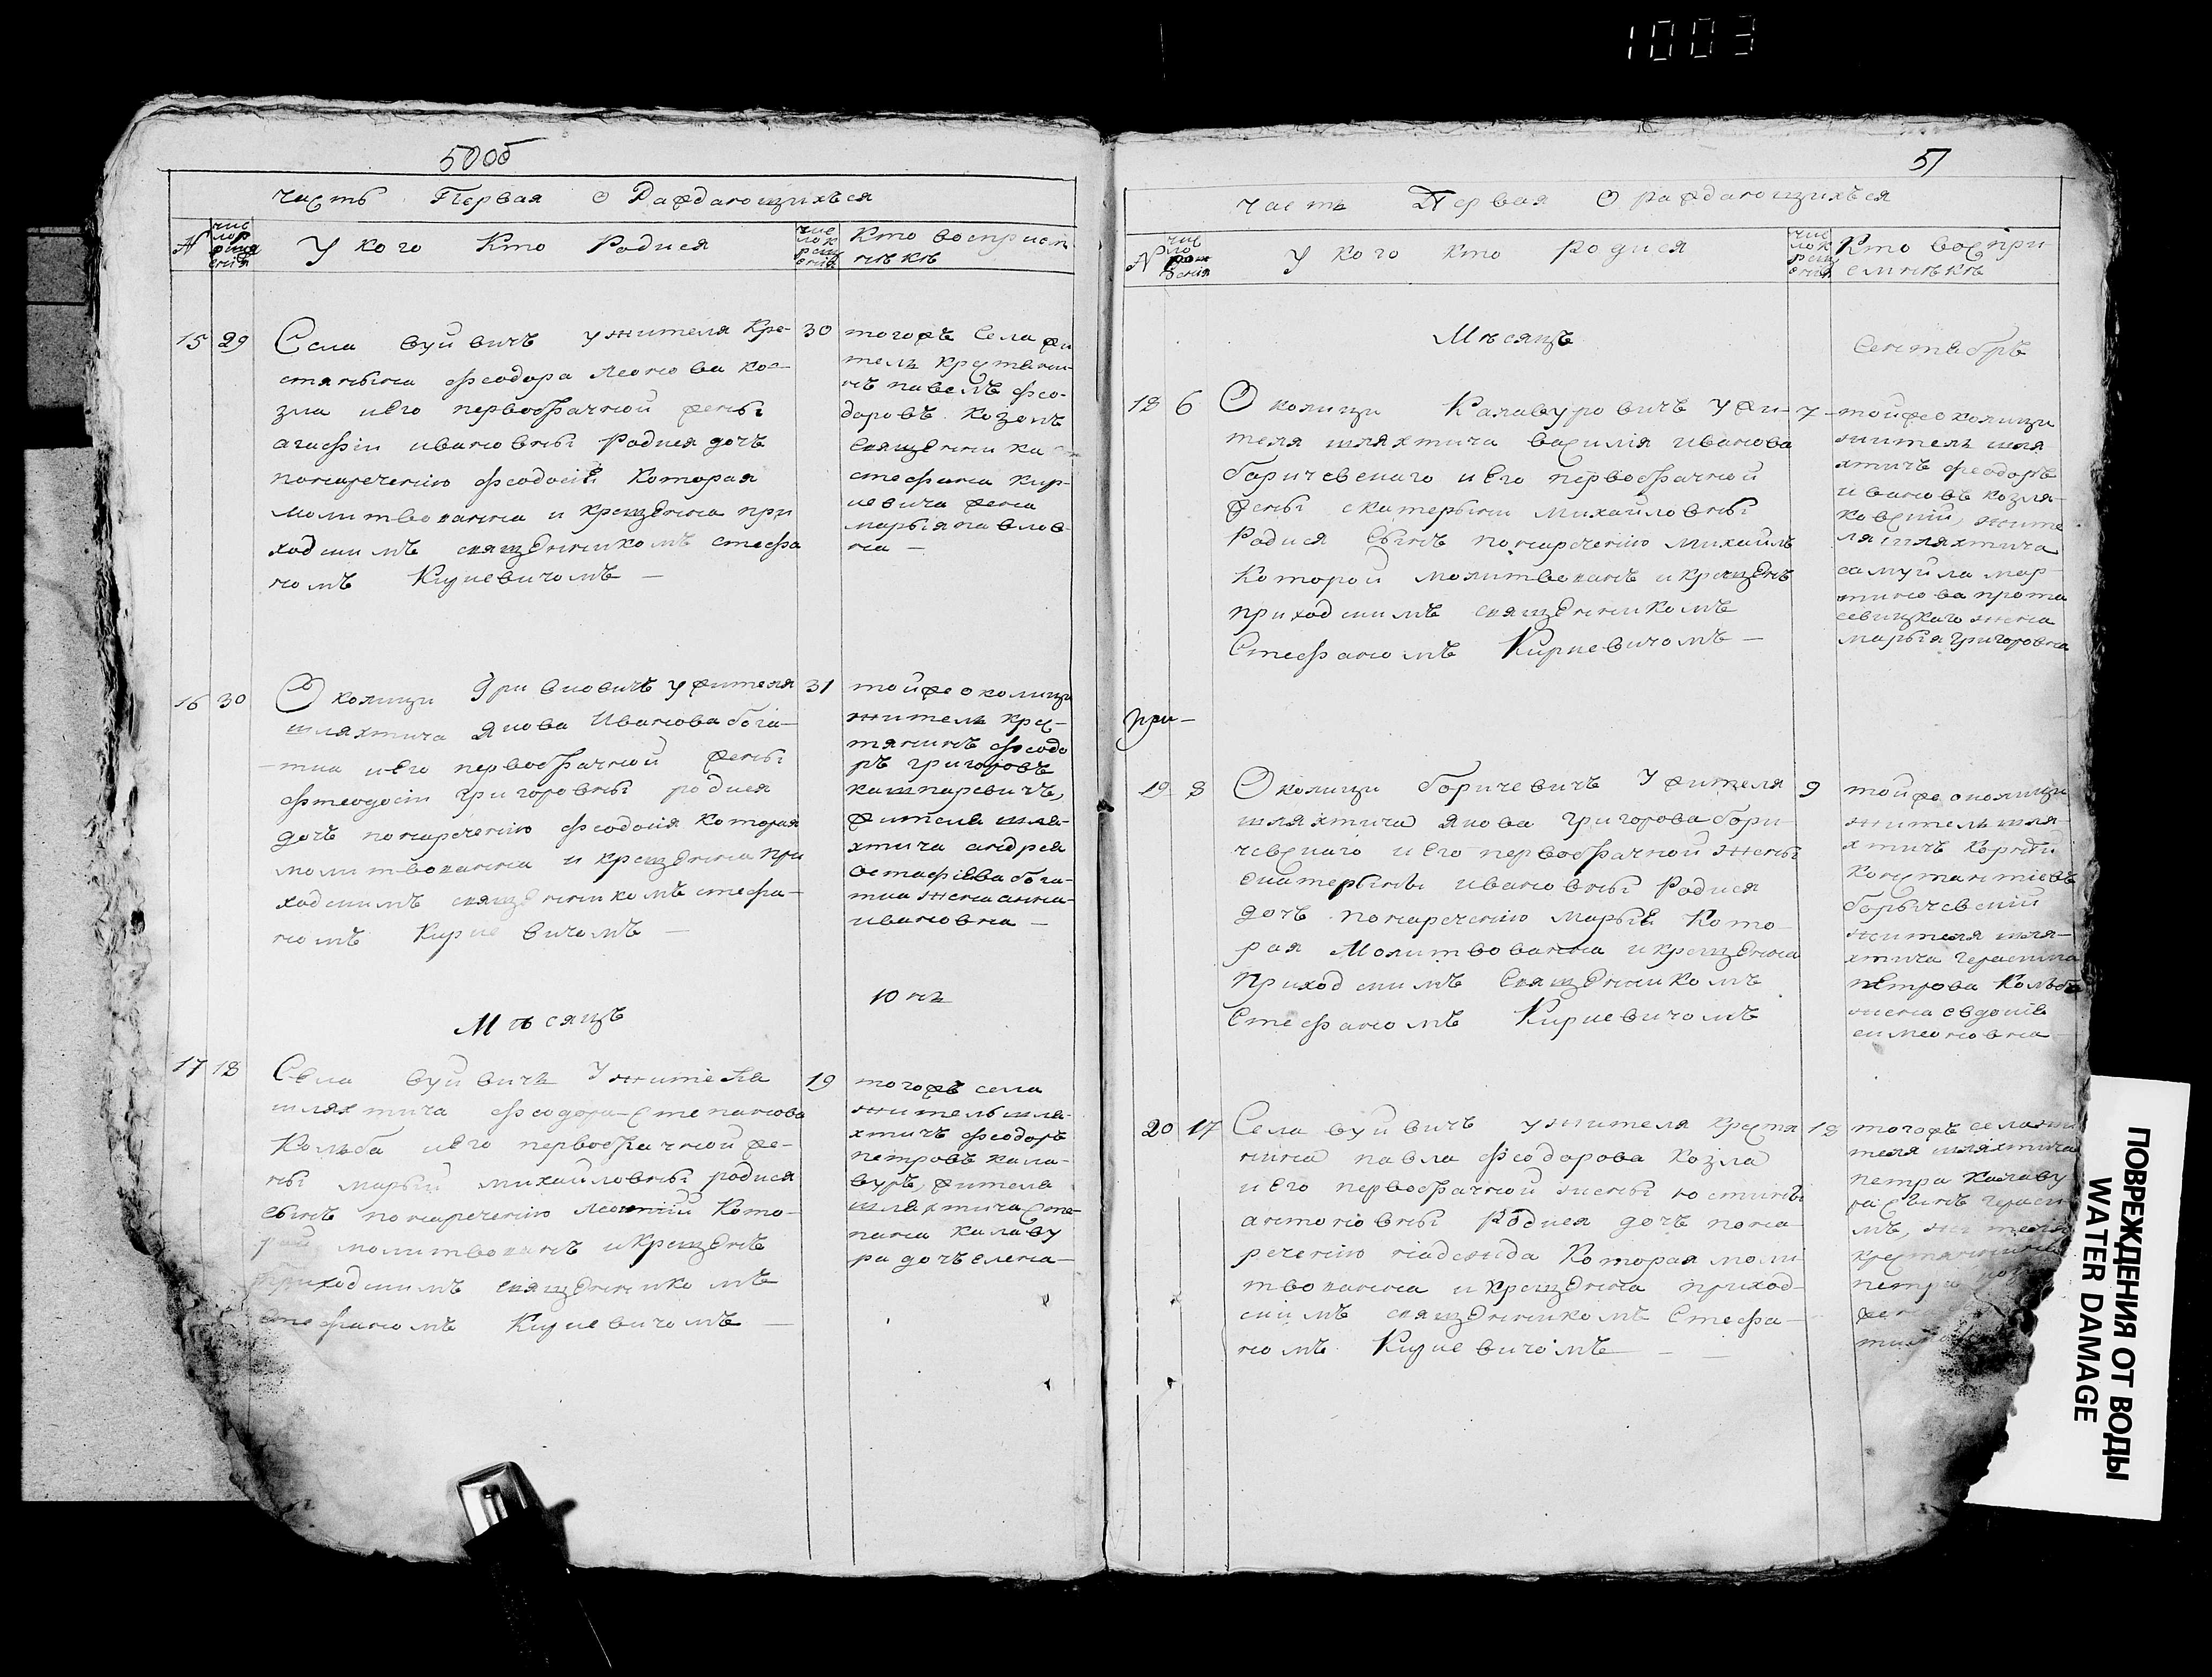 1003
50об
часть Первая о Раждающихъся
№
чис
ло р
ожд
ения
У кого Кто Родися
чис
ло к
рещ
ения
Кто восприем
никъ
15 29
Села вуйвичъ ужителя Кре-
стянина феодора Леонова ко-
зла иего первобрачной жены
агафiи ивановны Родися дочъ
понаречению феодосiя Которая
молитвованна и крещенна при
ходскимъ священникомъ стефа
номъ Кириевичомъ —
30
тогожъ Села жи
тель крестянин-
нъ павелъ фео-
доровъ козелъ
священника
стефана Кир-
иевича жена
марыя павлов-
на —
16 30
Околици Гривковичъ ужителя
шляхтича Якова Иванова бога-
тка иего первобрачной жены
фтеодосiи григоровны родися
дочъ понаречению феодосiя которая
молитвованна и крещенна при
ходскимъ священникомъ стефа-
номъ Кириевичомъ —
31
тойже околици
житель крес-
тянинъ феодо
ръ григоровъ
кашпаревичъ,
жителя шля-
хтича андрея
остафiева бога-
тка жена анна
ивановна —
Мѣсяцъ
юнь
17 18
Села вуйвичъ Ужителя
шляхтича феодора Степанова
Кольба иего первобрачной же-
ны марыи михайловны родися
сынъ понаречению Леонтiй Кото-
рой молитвованъ и крещенъ
приходскимъ священникомъ
Стефаномъ Кириевичомъ —
19
тогожъ села
житель шля-
хтичъ феодоръ
петровъ кала-
вуръ, жителя
шляхтича Сте-
пана калаву
ра дочъ елена —
51
часть Первая О раждающихъся
№
чис
ло
рож
дения
У кого кто родися
чис
ло к
рещ
ения
Кто воспри
емникъ
Мѣсяцъ
Сентябръ
18 6
Околици Калавуровичъ Ужи-
теля шляхтича василiя иванова
боричевскаго иего первобрачной
жены екатерыни михайловны
Родися Сынъ понаречению михаилъ
Которой молитвованъ и крещенъ
приходскимъ священникомъ
Стефаномъ Кириевичомъ —
7
тойже околици
житель шля
хтичъ феодоръ
ивановъ козля-
ковский, жите
ля шляхтича
самуйла мар-
тинова прота
севицкаго жена
марыя григоровна
при —
19 8
Околици боричевичъ Ужителя
шляхтича Якова Григорова бори-
чевскаго иего первобрачной жены
екатерыны ивановны Родися
дочъ понаречению Марыя Кото-
рая Молитвованна и крещенна
приходскимъ Священникомъ
Стефаномъ Кириевичомъ
9
тойже околици
житель шля-
хтичъ
константiевъ
борычевский
жителя шля-
хтича герасима
петрова Кольба
жена евдокiя
симеоновна
20 17
Села вуйвичъ ужителя крестя
нина павла феодорова козла
иего первобрачной жены юстины
антоновны Родися дочъ пона-
речению Которая моли-
твованна и крещенна приход-
скимъ священникомъ Стефа-
номъ Кириевичомъ —
18
тогожъ села жи
теля шляхтича
петра Калаву
ра сынъ гераси
мъ, жителя
крестянина
петра
ПОВРЕЖДЕНИЯ ОТ ВОДЫ
WATER DAMAGE